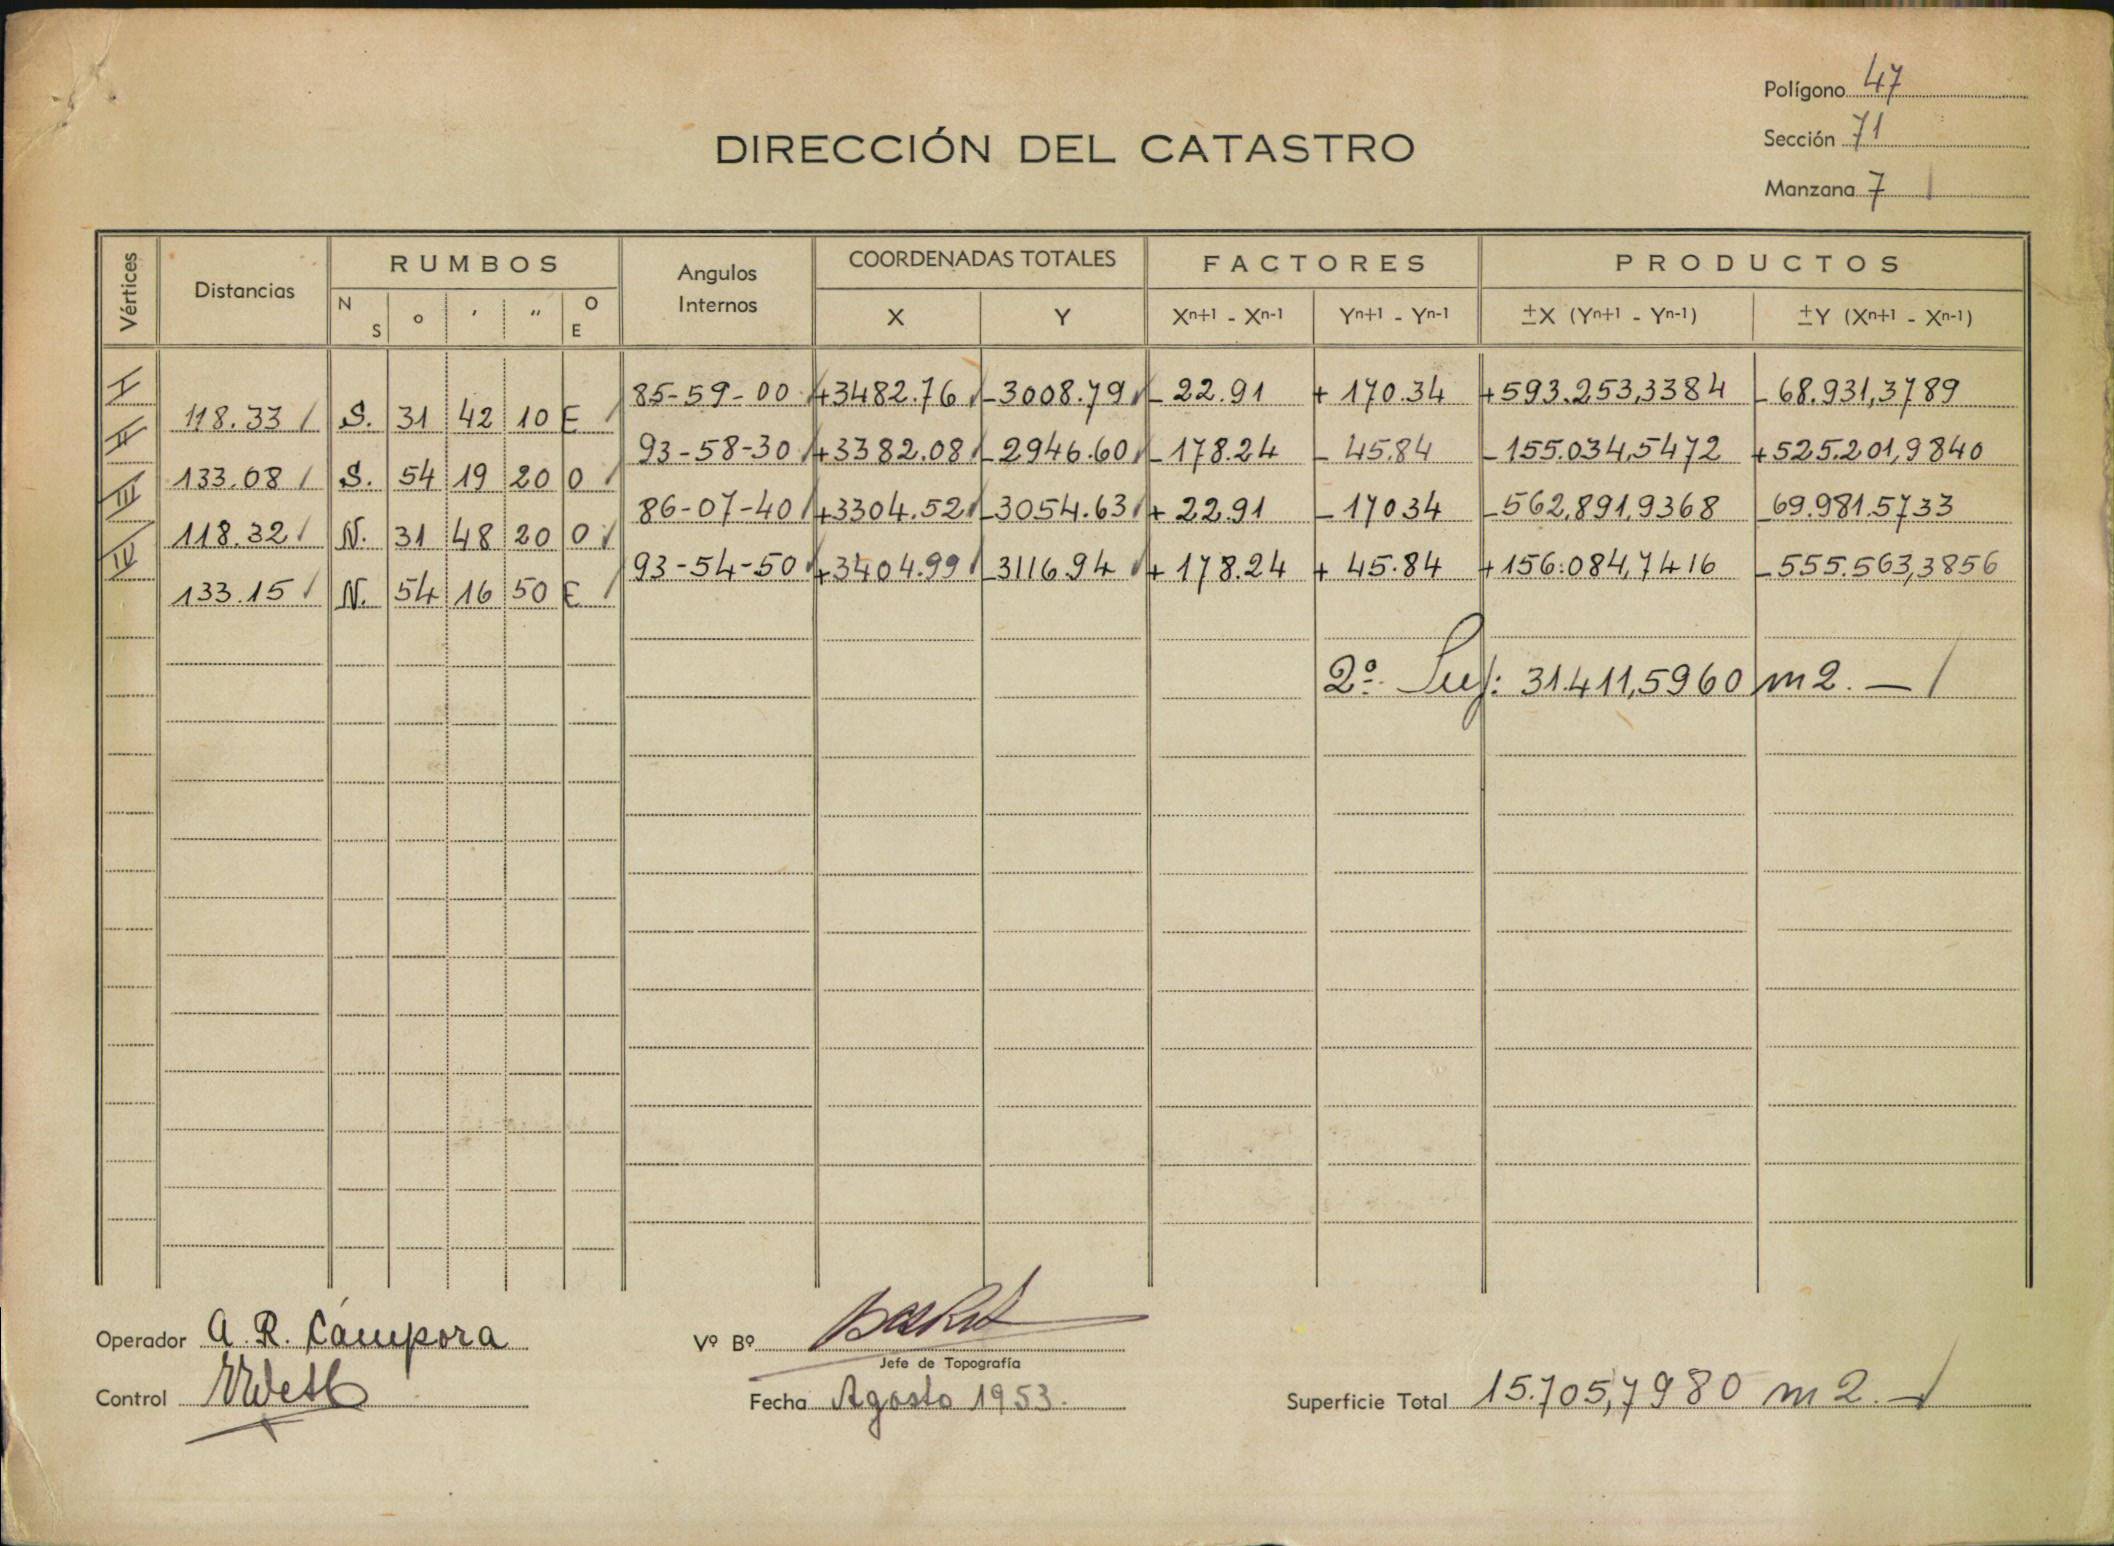 Polígono 47
Sección 71
Manzana 7
DIRECCIÓN DEL CATASTRO
Vértices Distancias RUMBOS Angulos Internos COORDENADAS TOTALES FACTORES PRODUCTOS
N S o ' " O E X Y Xn+1 - Xn-1 Yn+1 - Yn-1 ±X (Yn+1 - Yn-1) ±Y (Xn+1 - Xn-1)
I 85-59-00 +3482.76 -3008.79 - 22.91 + 170.34 +593.253,3384 - 68.931,3789
118.33 S. 31 42 10 E
II 93-58-30 +3382.08 -2946.60 -178.24 - 45.84 -155.034,5472 +525.201,9840
133.08 S. 54 19 20 O
III 86-07-40 +3304.52 -3054.63 + 22.91 - 17034 -562,891,9368 -69.981.5733
118.32 N. 31 48 20 O
IV 93-54-50 +3404.99 -3116.94 + 178.24 + 45.84 +156.084,7416 -555.563,3856
133.15 N. 54 16 50 E
2º Sup: 31.411,5960 m2. —
Operador A. R. Cámpora
Vº Bº
Jefe de Topografía
Control
Fecha Agosto 1953.
Superficie Total 15.705,7980 m2. —